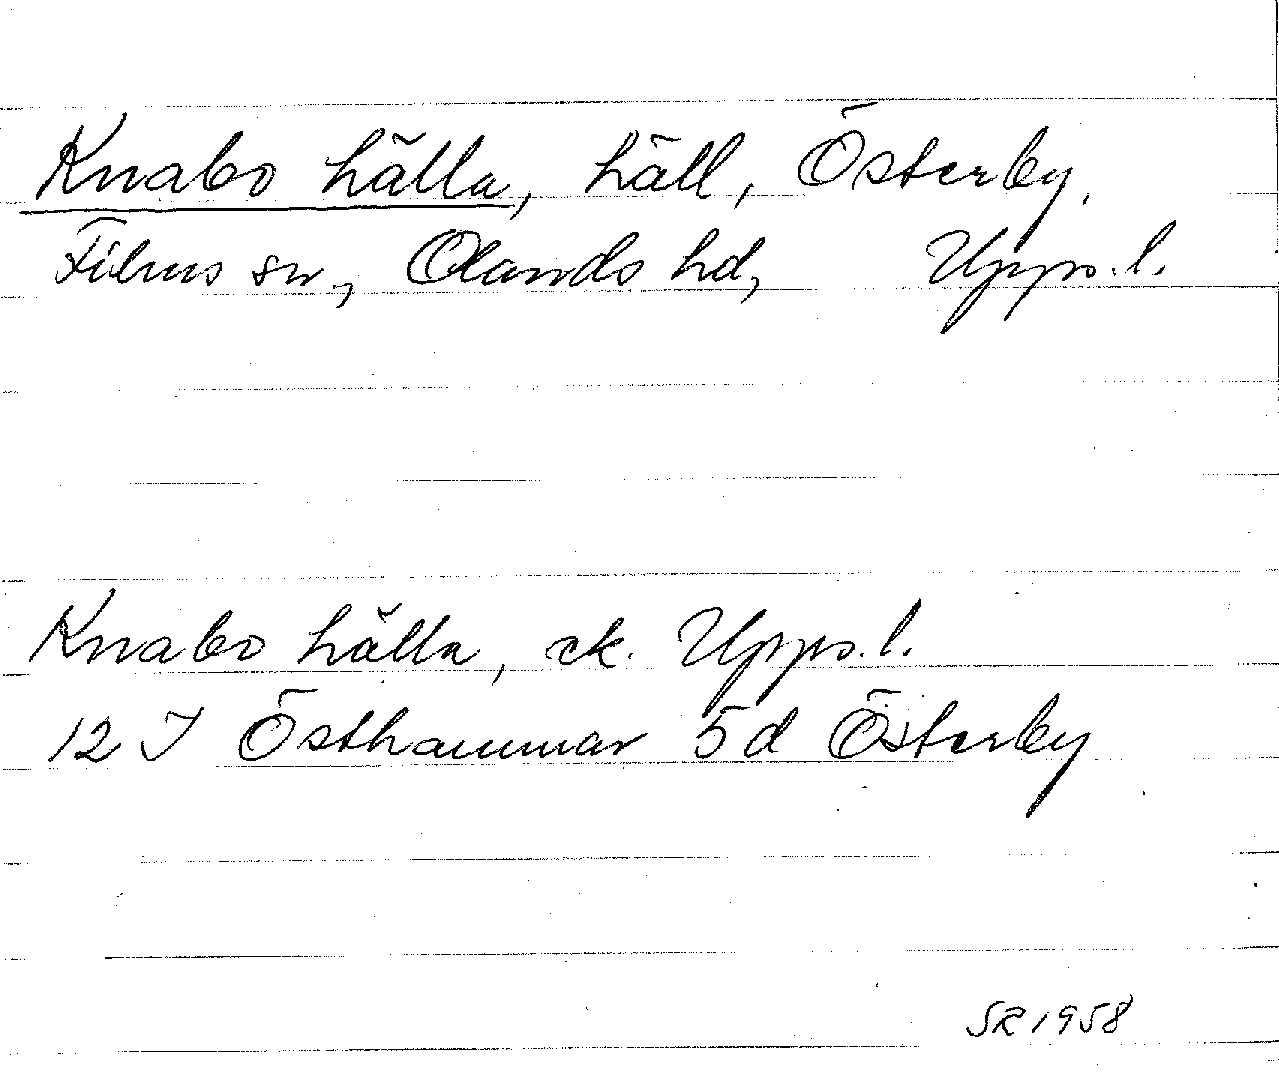 Knabo hälla, häll, Österby,
Films sn., Olands hd, Upps.l.
Knabo hälla, ek. Upps.l.
12 I Östhammar 5d Österby
SR 1958